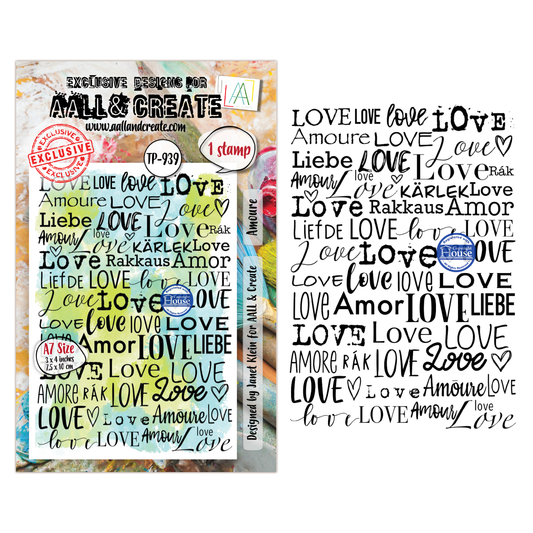 EXCLUSIVE DESIGNS FOR
AALL & CREATE
www.aallandcreate.com
EXCLUSIVE
EXCLUSIVE
EXCLUSIVE
TP-939
1 stamp
LOVE LOVE love LOVE
Amoure LOVE Love
Liebe LOVE Love Rák
Amour love Love KÄRLEK Love
Love Rakkaus Amor
LiefDE LOVE love LOVE
Love Love OVE
House
LOVE love love LOVE
LOVE Amor LOVE LIEBE
A7 Size
3 x 4 inches
7.5 x 10 cm
LOVE Love LOVE
AMORE RÁK LOVE Love
LOVE Love Amoure LOVE
love LOVE Amour love Love
Amoure
Designed by Janet Klein for AALL & Create
LOVE LOVE love LOVE
Amoure LOVE Love
Liebe LOVE Love Rák
Amour love Love KÄRLEK Love
Love Rakkaus Amor
LiefDE LOVE love LOVE
Love Love OVE
House
LOVE love love LOVE
LOVE Amor LOVE LIEBE
LOVE Love LOVE
AMORE RÁK LOVE Love
LOVE Love Amoure LOVE
love LOVE Amour love Love